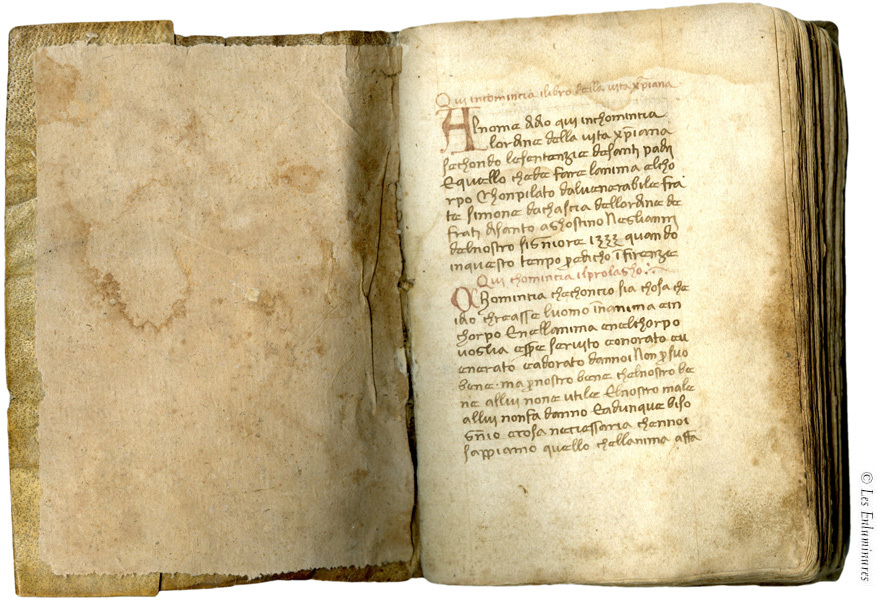 Qui incomincia ilibro della vita xp̄iana
Al nome didio qui inchomincia
lordine della vita xp̄iana
sechondo lesentenzie desanti padri
Equello chede fare lanima elcho
rpo Chonpilato daluenerabile fra
te simone dachascia dellordine de
frati disanto aghostino Neglianni
delnostro signiore 1333 quando
inquesto tenpo predicho ī firenze
Qui chomincia ilprolagho
chomincia chechonciò sia chosa che
idio chreasse luomo inanima ein
chorpo Enellanima enelchorpo
voglia essere seruito eonorato eu
enerato eadorato dannoi Non p̱ suo
bene. ma p̱ nostro bene chelnostro be
ne allui none utile Elnostro male
allui nonfa danno Eadunque biso
gnio echosa necessaria chennoi
sappiamo quello chellanima
© Les Enluminures